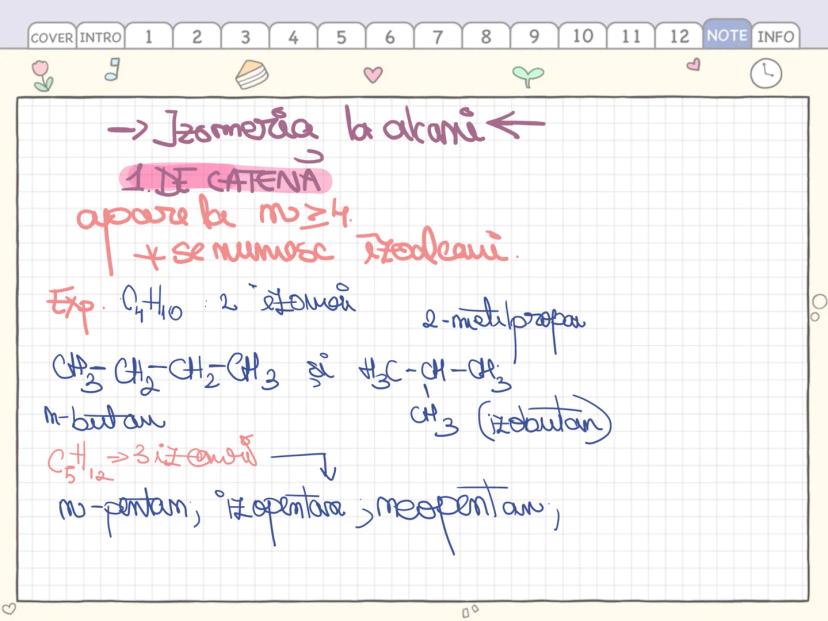 COVER INTRO 1 2 3 4 5 6 7 8 9 10 11 12 NOTE INFO
→ Izomeria la alcani ←
1. DE CATENĂ
apare la n ≥ 4.
* se numesc izoalcani.
Exp. C₄H₁₀ : 2 izomeri
2-metilpropan
CH₃-CH₂-CH₂-CH₃ și H₃C-CH-CH₃
n-butan CH₃ (izobutan)
C₅H₁₂ → 3 izomeri
n-pentan; izopentan; neopentan;